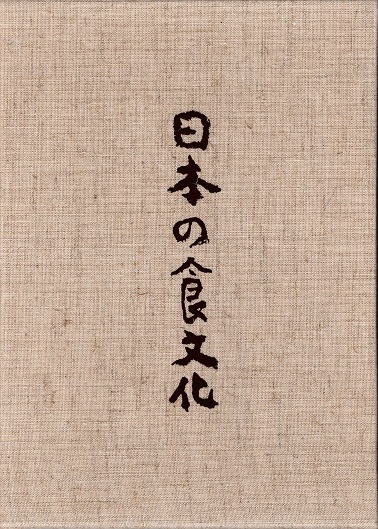 日本の食文化